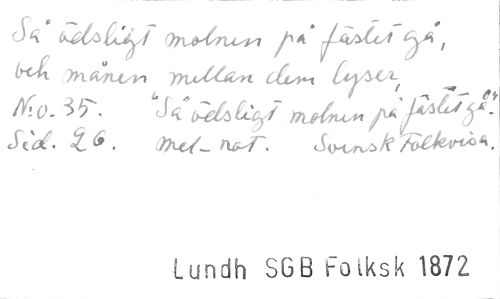 Så ödsligt molnen på fästet gå,
och månen mellan dem lyser,
N:o. 35. "Så ödsligt molnen på fästet gå."
Sid. 26. mel-not. Svensk Folkvisa.
Lundh SGB Folksk 1872